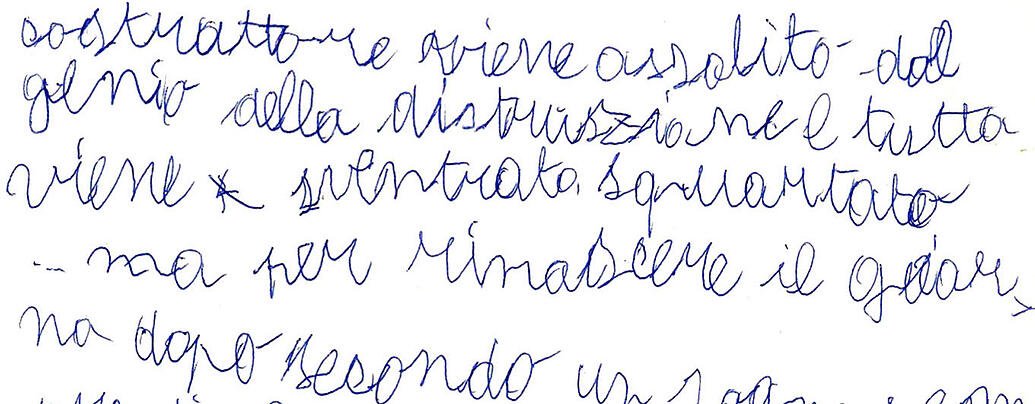 costruttore viene assalito dal
genio della distruzione e tutto
viene sventrato squartato
... ma per rinascere il gior-
no dopo secondo un